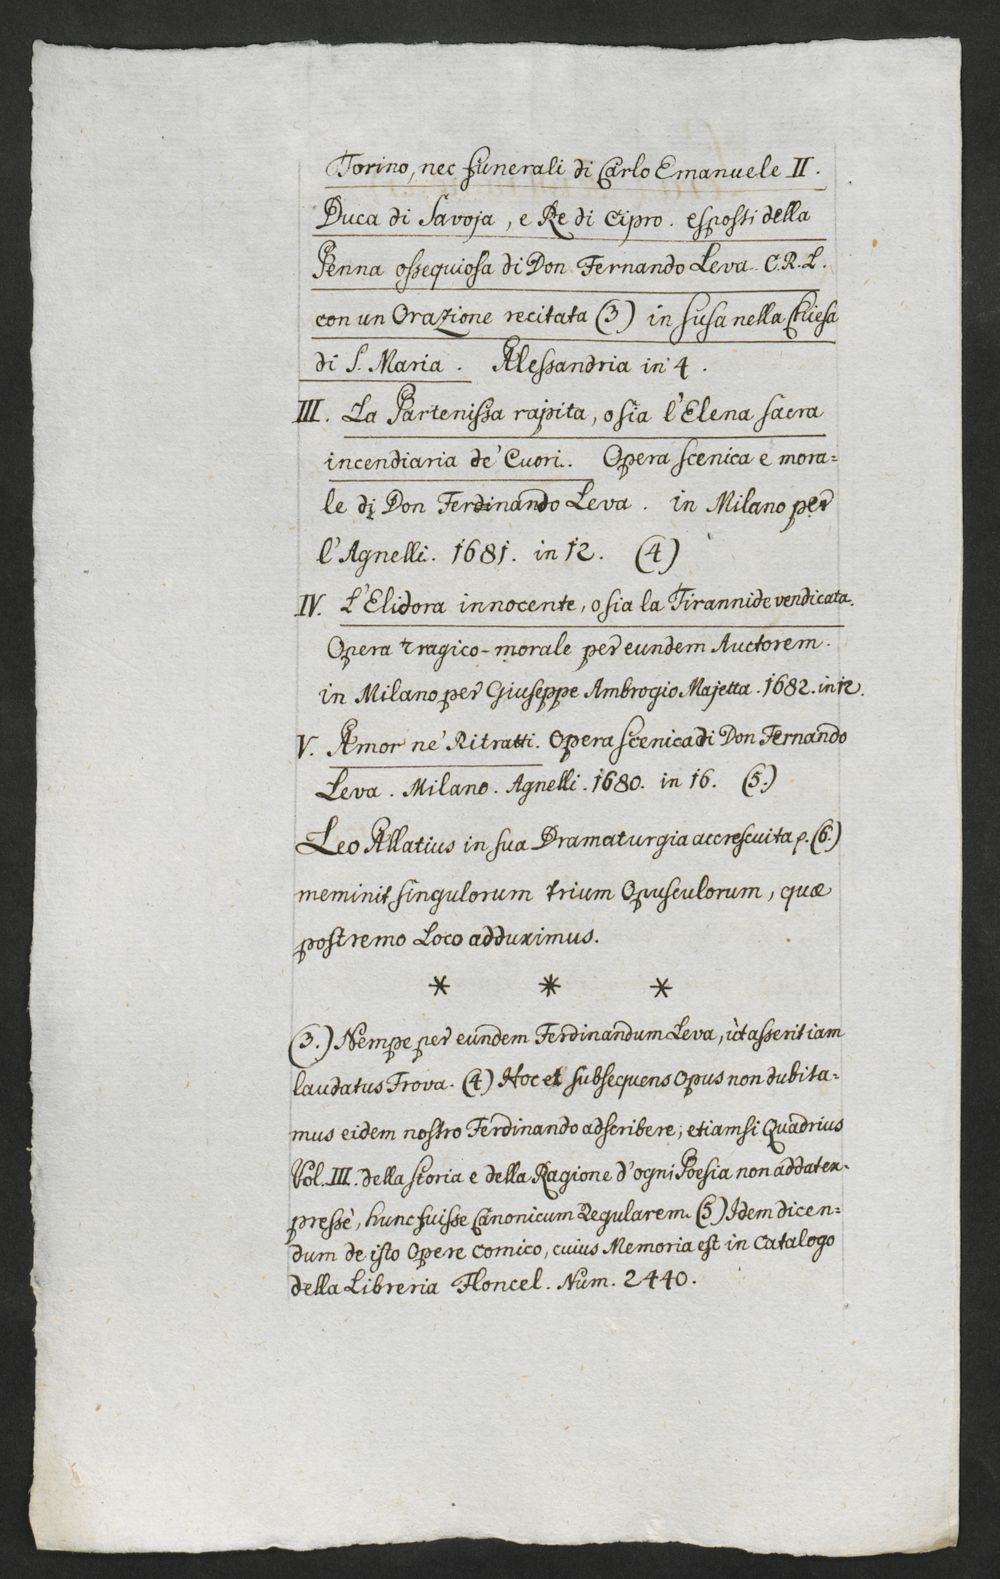 Torino, nec funerali di Carlo Emanuele II.
Duca di Savoja, e Re di Cipro. esposti della
Penna ossequiosa di Don Fernando Leva. C.R.L.
con un Orazione recitata (3) in Susa nella Chiesa
di S. Maria. Alessandria in 4.
III. La Partenissa rapita, o sia l'Elena sacra
incendiaria de' Cuori. Opera scenica e mora=
le di Don Ferdinando Leva. in Milano per
l'Agnelli. 1681. in 12. (4)
IV. L'Elidora innocente, o sia la Tirannide vendicata.
Opera tragico-morale per eundem Auctorem.
in Milano per Giuseppe Ambrogio Majetta. 1682. in 12.
V. Amor ne' Ritratti. Opera Scenica di Don Fernando
Leva. Milano. Agnelli. 1680. in 16. (5.)
Leo Allatius in sua Dramaturgia accrescuita p. (6.)
meminit singulorum trium Opusculorum, quæ
postremo Loco adduximus.
* * *
(3.) Nempe per eundem Ferdinandum Leva, ut asserit iam
laudatus Trova. (4) Hoc et subsequens Opus non dubita=
mus eidem nostro Ferdinando adscribere, etiamsi Quadrius
Vol. III. della storia e della Ragione d'ogni Poesia non addat ex=
pressè, hunc fuisse Canonicum Regularem. (5) Idem dicen=
dum de isto Opere comico, cuius Memoria est in Catalogo
della Libreria Floncel. Num. 2440.